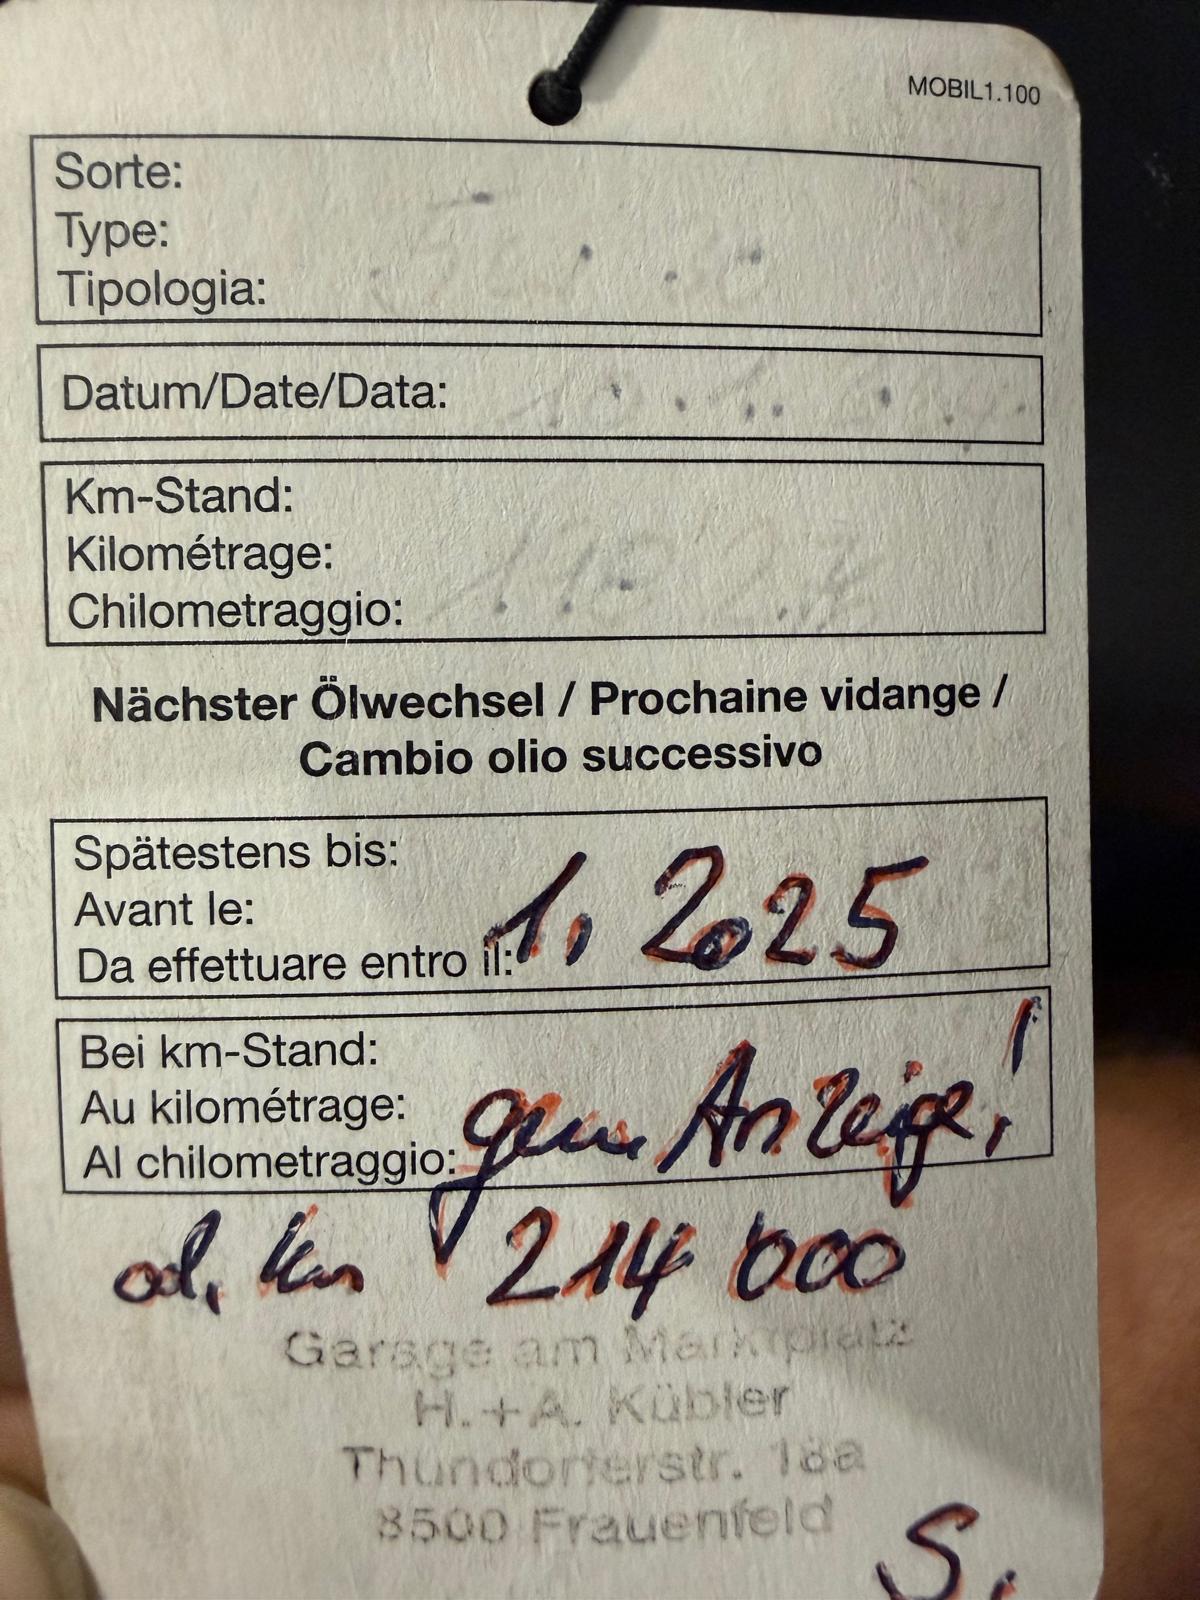 MOBIL1.100
Sorte:
Type:
Tipologia:
Datum/Date/Data:
Km-Stand:
Kilométrage:
Chilometraggio:
Nächster Ölwechsel / Prochaine vidange /
Cambio olio successivo
Spätestens bis:
Avant le:
Da effettuare entro il: 1. 2025
Bei km-Stand:
Au kilométrage:
Al chilometraggio: gem Anzeige!
od. km 214 000
Garage am Marktplatz
H.+A. Kübler
Thundorferstr. 18a
8500 Frauenfeld
S.